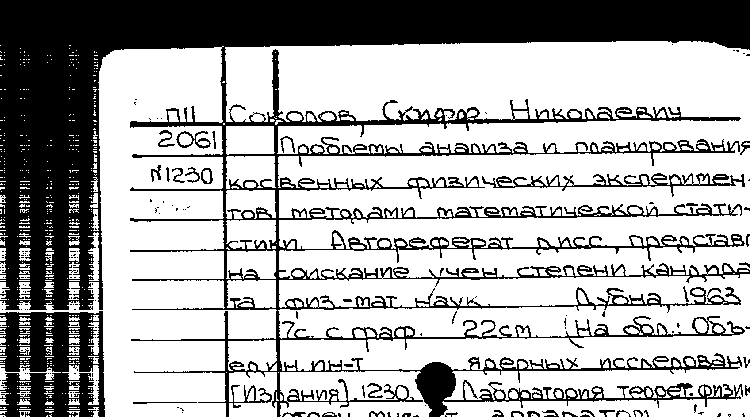 П11 Соколов, Скифр Николаевич
2061 Проблемы анализа и планирования
№1230 косвенных физических эксперимен-
тов методами математической стати-
стики. Автореферат дисс, представл
на соискание учен. степени кандида
та физ-мат наук. Дубна, 1963
7с. с граф. 22см (На обл.: Объ-
един. ин-т ядерных исследовани
[Издания]. 1230. Лаборатория теорет. физик